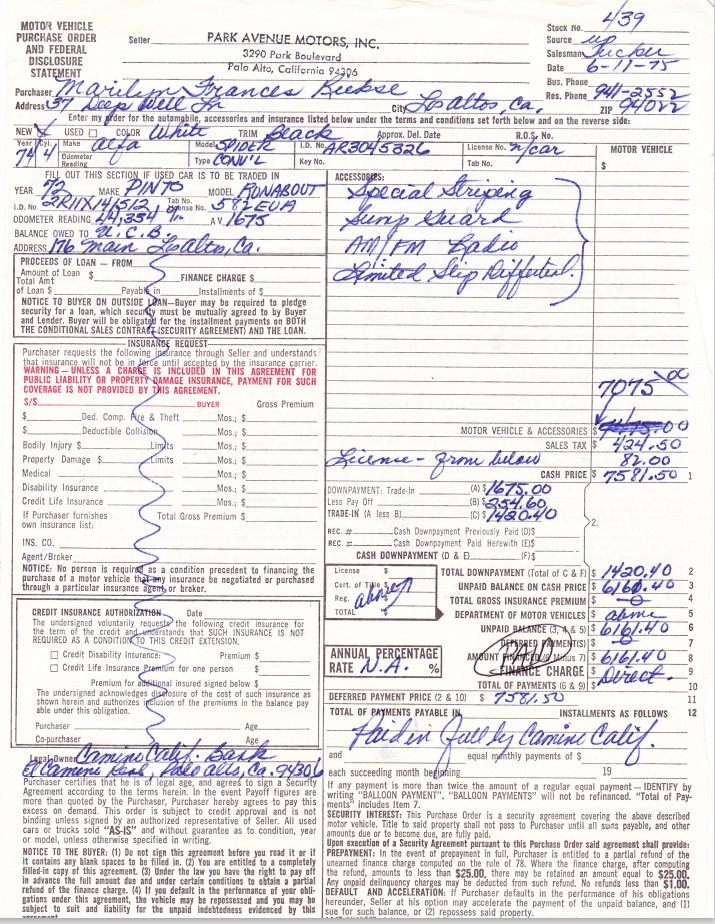 MOTOR VEHICLE
PURCHASE ORDER
AND FEDERAL
DISCLOSURE
STATEMENT
Seller PARK AVENUE MOTORS, INC.
3290 Park Boulevard
Palo Alto, California 94306
Stock No. 439
Source up
Salesman Tucker
Date 6-11-75
Bus. Phone
Res. Phone 941-2552
Purchaser Marilyn Frances
Address 37 Deep Well Ln City Los Altos, Ca. ZIP 94022
Enter my order for the automobile, accessories and insurance listed below under the terms and conditions set forth below and on the reverse side:
NEW X USED COLOR White TRIM Black Approx. Del. Date R.O.S. No.
Year 74 Cyl. 4 Make Alfa Model SPIDER I.D. No. AR3045326 License No. N/Car MOTOR VEHICLE
Odometer Reading Type CONV'L Key No. Tab No. $
FILL OUT THIS SECTION IF USED CAR IS TO BE TRADED IN
YEAR 72 MAKE PINTO MODEL RUNABOUT
I.D. No. 2R11X141512 Tab No. License No. 582EUA
ODOMETER READING 44,354 A V 1675
BALANCE OWED TO U.C.B.
ADDRESS 176 Main Los Altos, Ca.
ACCESSORIES:
Special Striping
Sump Guard
AM/FM Radio
Limited Slip Diffential.
PROCEEDS OF LOAN — FROM
Amount of Loan $ FINANCE CHARGE $
Total Amt
of Loan $ Payable in Installments of $
NOTICE TO BUYER ON OUTSIDE LOAN—Buyer may be required to pledge
security for a loan, which security must be mutually agreed to by Buyer
and Lender. Buyer will be obligated for the installment payments on BOTH
THE CONDITIONAL SALES CONTRACT (SECURITY AGREEMENT) AND THE LOAN.
INSURANCE REQUEST
Purchaser requests the following insurance through Seller and understands
that insurance will not be in force until accepted by the insurance carrier.
WARNING—UNLESS A CHARGE IS INCLUDED IN THIS AGREEMENT FOR
PUBLIC LIABILITY OR PROPERTY DAMAGE INSURANCE, PAYMENT FOR SUCH
COVERAGE IS NOT PROVIDED BY THIS AGREEMENT.
S/S BUYER Gross Premium
$ Ded. Comp. Fire & Theft Mos.; $
$ Deductible Collision Mos.; $
Bodily Injury $ Limits Mos.; $
Property Damage $ Limits Mos.; $
Medical Mos.; $
Disability Insurance Mos.; $
Credit Life Insurance Mos.; $
If Purchaser furnishes Total Gross Premium $
own insurance list:
INS. CO.
Agent/Broker
NOTICE: No person is required as a condition precedent to financing the
purchase of a motor vehicle that any insurance be negotiated or purchased
through a particular insurance agent or broker.
7075 00
MOTOR VEHICLE & ACCESSORIES $
SALES TAX $ 424.50
License - from below 82.00
CASH PRICE $ 7581.50 1
DOWNPAYMENT: Trade-In (A) $ 1675.00
Less Pay Off (B) $ 254.60
TRADE-IN (A less B) (C) $ 1420.40
2.
REC. # Cash Downpayment Previously Paid (D)$
REC. # Cash Downpayment Paid Herewith (E)$
CASH DOWNPAYMENT (D & E) (F)$
License $
Cert. of Title $
Reg. above
TOTAL $
TOTAL DOWNPAYMENT (Total of C & F) $ 1420.40 2
UNPAID BALANCE ON CASH PRICE $ 6161.40 3
TOTAL GROSS INSURANCE PREMIUM $ -0- 4
DEPARTMENT OF MOTOR VEHICLES $ above 5
UNPAID BALANCE (3, 4 & 5) $ 6161.40 6
DEFERRED PAYMENT(S) $ -0- 7
AMOUNT FINANCED (6 Minus 7) $ 6161.40 8
FINANCE CHARGE $ Direct. 9
PAID
TOTAL OF PAYMENTS (6 & 9) $ 10
ANNUAL PERCENTAGE
RATE N.A. %
DEFERRED PAYMENT PRICE (2 & 10) $ 7581.50 11
TOTAL OF PAYMENTS PAYABLE IN INSTALLMENTS AS FOLLOWS 12
Paid in full by Camino Calif.
and equal monthly payments of $
each succeeding month beginning 19
CREDIT INSURANCE AUTHORIZATION Date
The undersigned voluntarily requests the following credit insurance for
the term of the credit and understands that SUCH INSURANCE IS NOT
REQUIRED AS A CONDITION TO THIS CREDIT EXTENSION.
Credit Disability Insurance: Premium $
Credit Life Insurance Premium for one person $
Premium for additional insured signed below $
The undersigned acknowledges disclosure of the cost of such insurance as
shown herein and authorizes inclusion of the premiums in the balance pay
able under this obligation.
Purchaser Age
Co-purchaser Age
Legal Owner Camino Calif. Bank
El Camino Real, Palo Alto, Ca. 94306
Purchaser certifies that he is of legal age, and agrees to sign a Security
Agreement according to the terms herein. In the event Payoff figures
are more than quoted the Purchaser, Purchaser hereby agrees to pay this
excess on demand. This order is subject to credit approval and is not
binding unless signed by an authorized representative of Seller. All used
cars or trucks sold "AS-IS" and without guarantee as to condition, year
or model, unless otherwise specified in writing.
NOTICE TO THE BUYER: (1) Do not sign this agreement before you read it or if
it contains any blank spaces to be filled in. (2) You are entitled to a completely
filled-in copy of this agreement. (3) Under the law you have the right to pay off
in advance the full amount due and under certain conditions to obtain a partial
refund of the finance charge. (4) If you default in the performance of your obli-
gations under this agreement, the vehicle may be repossessed and you may be
subject to suit and liability for the unpaid indebtedness evidenced by this
agreement.
If any payment is more than twice the amount of a regular equal payment — IDENTIFY by
writing "BALLOON PAYMENT". "BALLOON PAYMENTS" will not be refinanced. "Total of Pay-
ments" includes Item 7.
SECURITY INTEREST: This Purchase Order is a security agreement covering the above described
motor vehicle. Title to said property shall not pass to Purchaser until all suns payable, and other
amounts due or to become due, are fully paid.
Upon execution of a Security Agreement pursuant to this Purchase Order said agreement shall provide:
PREPAYMENT: In the event of prepayment in full, Purchaser is entitled to a partial refund of the
unearned finance charge computed on the rule of 78. Where the finance charge, after computing
the refund, amounts to less than $25.00, there may be retained an amount equal to $25.00.
Any unpaid delinquency charges may be deducted from such refund. No refunds less than $1.00.
DEFAULT AND ACCELERATION: If Purchaser defaults in the performance of his obligations
hereunder, Seller at its option may accelerate the payment of the unpaid balance, and (1)
sue for such balance, or (2) repossess said property.